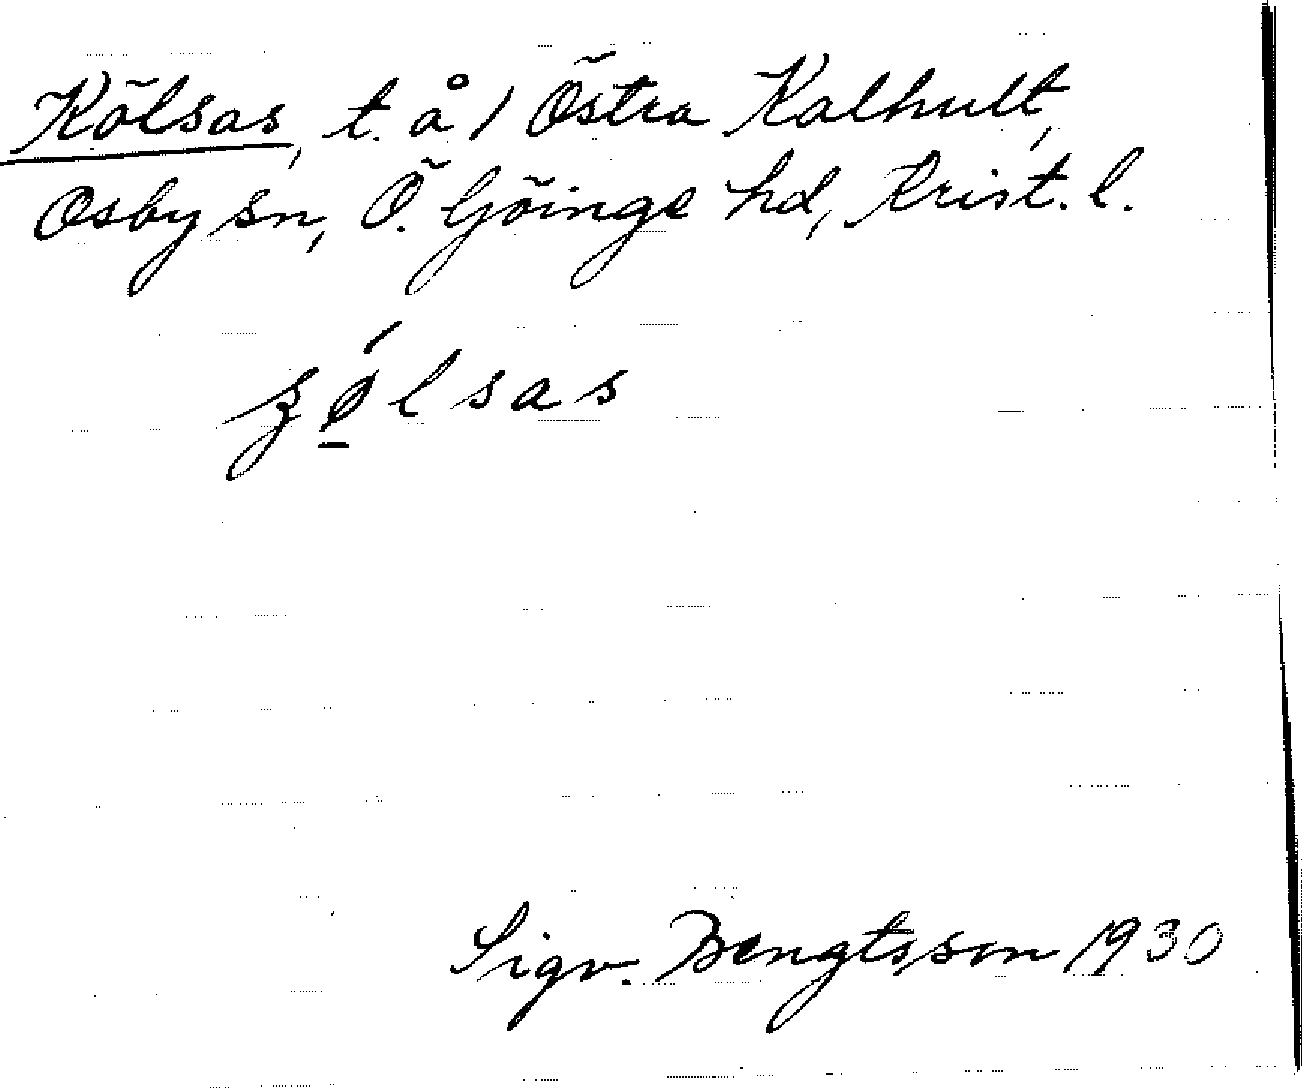 Kölsas, t. å / Östra Kalhult,
Osby sn, Ö. Göinge hd, Krist. l.
ʒǿ̠lsas
Sigv. Bengtsson 1930